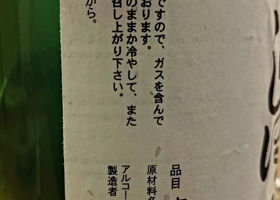 ですので、ガスを含んで
おります。
のままか冷やして、また
召し上がり下さい。
から。
品目
原材料名
アルコー
製造者